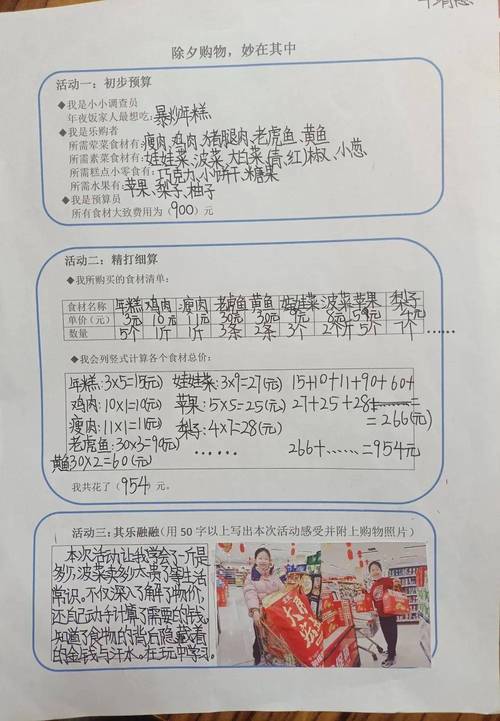 除夕购物，妙在其中
活动一：初步预算
◆我是小小调查员
年夜饭家人最想吃：暴炒年糕
◆我是乐购者
所需荤菜食材有：瘦肉、鸡肉、猪腿肉、老虎鱼、黄鱼
所需素菜食材有：娃娃菜、菠菜、大白菜、(青、红)椒、小葱
所需糕点小零食有：巧克力、小饼干、糖果
所需水果有：苹果、梨子、柚子
◆我是预算员
所有食材大致费用为（900）元
活动二：精打细算
◆我所购买的食材清单：
食材名称 年糕 鸡肉 瘦肉 老虎鱼 黄鱼 娃娃菜 菠菜 苹果 梨子
单价（元） 3元 10元 11元 30元 30元 9元 8元 5元 4元
数量 5个 1斤 1斤 3条 2条 3个 2个斤 5个 7个 ……
◆我会列竖式计算各个食材总价：
年糕：3×5=15(元) 娃娃菜：3×9=27(元) 15+10+11+90+60+
鸡肉：10×1=10(元) 苹果：5×5=25(元) 27+25+28+……
瘦肉：11×1=11(元) 梨子：4×7=28(元) =266(元)
老虎鱼：30×3=90(元) …… 266+……=954元
黄鱼30×2=60(元)
我共花了（954）元。
活动三：其乐融融（用 50 字以上写出本次活动感受并附上购物照片）
本次活动让我学会了一斤是
多少，菠菜卖多少太贵了等生活
常识。不仅深入了解了物价，
还自己动手计算了需要的钱。
知道了食物的背后隐藏着
的金钱与汗水。在玩中学习。